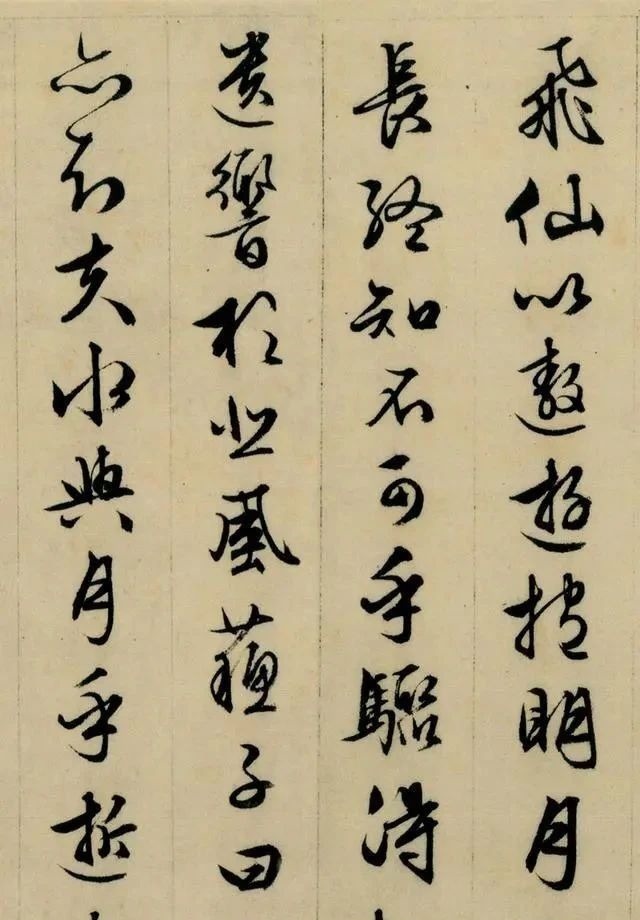 飛仙以遨遊抱明月
長終知不可乎驟得
遺響於悲風蘇子曰
亦知夫水與月乎逝